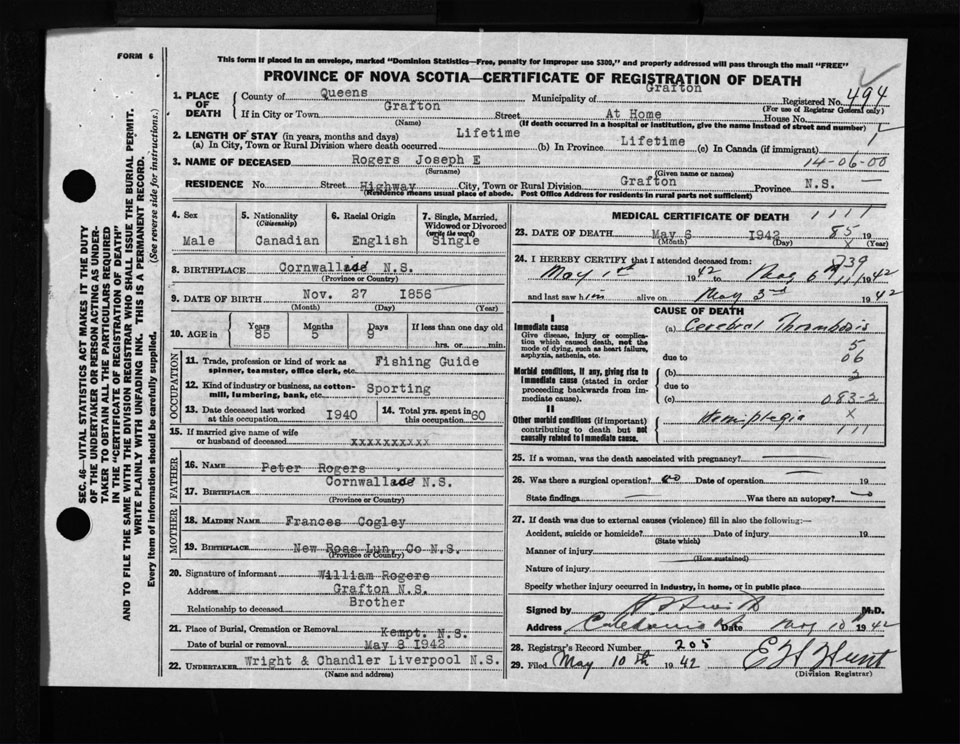 FORM 6
This form if placed in an envelope, marked "Dominion Statistics—Free, penalty for improper use $300," and properly addressed will pass through the mail "FREE"
PROVINCE OF NOVA SCOTIA—CERTIFICATE OF REGISTRATION OF DEATH
SEC. 46—VITAL STATISTICS ACT MAKES IT THE DUTY
OF THE UNDERTAKER OR PERSON ACTING AS UNDER-
TAKER TO OBTAIN ALL THE PARTICULARS REQUIRED
IN THE "CERTIFICATE OF REGISTRATION OF DEATH" AND
TO FILE THE SAME WITH THE DIVISION REGISTRAR WHO SHALL ISSUE THE BURIAL PERMIT.
WRITE PLAINLY WITH UNFADING INK. THIS IS A PERMANENT RECORD.
Every item of information should be carefully supplied. (See reverse side for instructions.)
1. PLACE OF DEATH County of Queens Municipality of Grafton Registered No. 494
(For use of Registrar General only)
If in City or Town Grafton Street At Home House No.
(Name) (If death occurred in a hospital or institution, give the name instead of street and number)
2. LENGTH OF STAY (in years, months and days)
(a) In City, Town or Rural Division where death occurred Lifetime (b) In Province Lifetime (c) In Canada (if immigrant)
3. NAME OF DECEASED Rogers Joseph E 14-06-00
(Surname) (Given name or names)
RESIDENCE No. Street Highway City, Town or Rural Division Grafton Province N.S.
(Residence means usual place of abode. Post Office Address for residents in rural parts not sufficient)
4. Sex 5. Nationality (Citizenship) 6. Racial Origin 7. Single, Married, Widowed or Divorced (write the word)
Male Canadian English Single
8. BIRTHPLACE Cornwall N.S.
(Province or Country)
9. DATE OF BIRTH Nov. 27 1856
(Month) (Day) (Year)
10. AGE in Years Months Days If less than one day old
85 5 9 hrs. or min.
OCCUPATION
11. Trade, profession or kind of work as spinner, teamster, office clerk, etc. Fishing Guide
12. Kind of industry or business, as cotton-mill, lumbering, bank, etc. Sporting
13. Date deceased last worked at this occupation 1940 14. Total yrs. spent in this occupation 60
15. If married give name of wife or husband of deceased xxxxxxxxxx
FATHER
16. Name Peter Rogers
17. Birthplace Cornwall N.S.
(Province or Country)
MOTHER
18. Maiden Name Frances Cogley
19. Birthplace New Ross Lun. Co N.S.
(Province or Country)
20. Signature of informant William Rogers
Address Grafton N.S.
Relationship to deceased Brother
21. Place of Burial, Cremation or Removal Kempt. N.S.
Date of burial or removal May 8 1942
22. UNDERTAKER Wright & Chandler Liverpool N.S.
(Name and address)
MEDICAL CERTIFICATE OF DEATH 1111
23. DATE OF DEATH May 6 1942 85 19
(Month) (Day) x (Year)
24. I HEREBY CERTIFY that I attended deceased from:
May 1st 1942 to May 6 1942
and last saw him alive on May 3rd 1942
CAUSE OF DEATH
I
Immediate cause
Give disease, injury or complication which caused death, not the mode of dying, such as heart failure, asphyxia, asthenia, etc.
(a) Cerebral Thrombosis
5
due to 06
Morbid conditions, if any, giving rise to immediate cause (stated in order proceeding backwards from immediate cause).
(b) 2
due to
(c) 083-2
II
Other morbid conditions (if important) contributing to death but not causally related to immediate cause.
Hemiplegia X
111
25. If a woman, was the death associated with pregnancy?
26. Was there a surgical operation? no Date of operation 19
State findings Was there an autopsy? no
27. If death was due to external causes (violence) fill in also the following:—
Accident, suicide or homicide? Date of injury 19
(State which)
Manner of injury
(How sustained)
Nature of injury
Specify whether injury occurred in industry, in home, or in public place
Signed by M.D.
Address Caledonia Date May 10 1942
28. Registrar's Record Number 205
29. Filed May 10th 1942 E H Hunt
(Division Registrar)